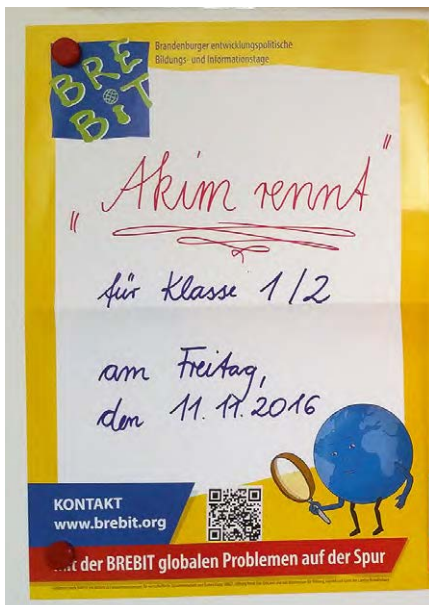 BRE
BIT
Brandenburger entwicklungspolitische
Bildungs- und Informationstage
„Akim rennt“
für Klasse 1/2
am Freitag,
den 11.11.2016
KONTAKT
www.brebit.org
mit der BREBIT globalen Problemen auf der Spur